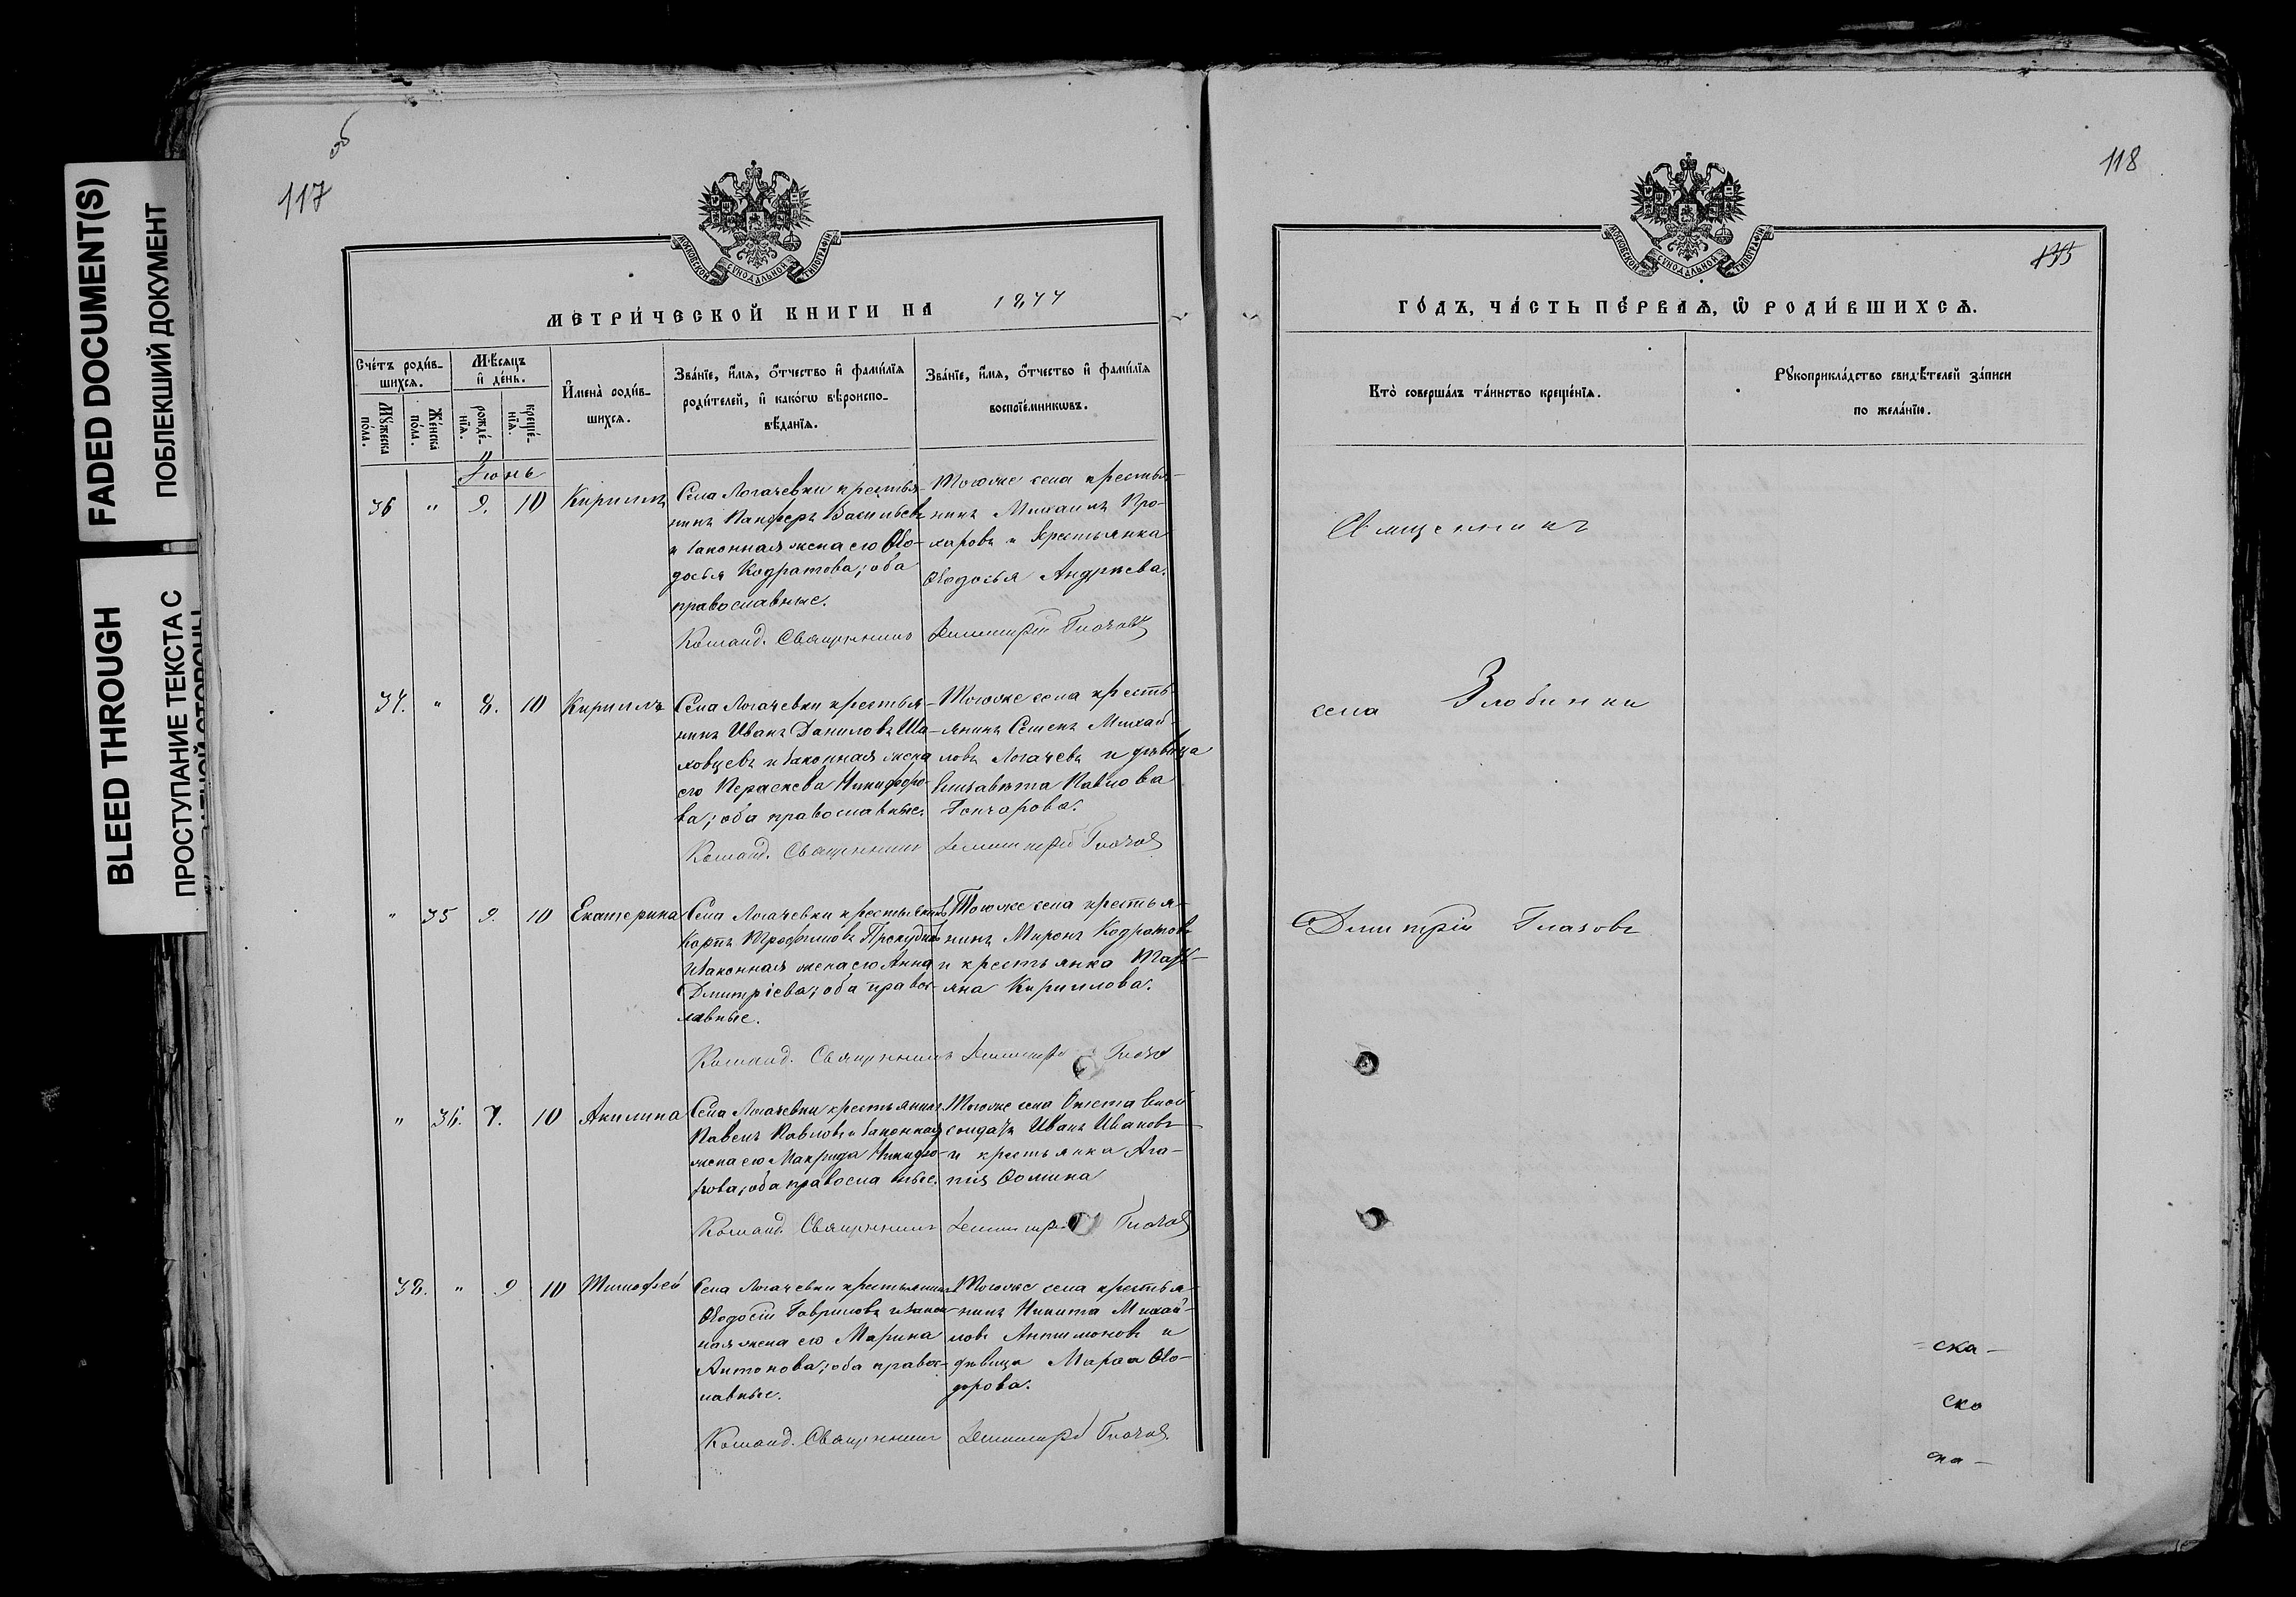 FADED DOCUMENT(S)
ПОБЛЕКШИЙ ДОКУМЕНТ
BLEED THROUGH
ПРОСТУПАНИЕ ТЕКСТА С
об
117
МОСКОВСКОЙ СУНОДАЛЬНОЙ ТИПОГРАФІИ
МЕТРИ́ЧЕСКОЙ КНИГИ НА 1877
Сче́тъ роди́в-
шихся.
Мѣ́сяцъ
и҆ де́нь.
Мꙋ́жеска
по́ла.
Же́нска
по́ла.
рожде́-
нїѧ.
креще́-
нїѧ.
И҆мена̀ роди́в-
шихсѧ.
Зва́нїе, и҆́мѧ, ѻ҆́тчество и҆ фами́лїѧ
роди́телей, и҆ како́гѡ вѣроиспо-
вѣ́данїѧ.
Зва́нїе, и҆́мѧ, ѻ҆́тчество и҆ фами́лїѧ
воспрїе́мникѡвъ.
Іюнь
36 " 9. 10 Кириллъ
Села Логачевки крестья-
нинъ Панферъ Васильевъ
и законная жена его Ѳео-
досья Кодратова; оба
православные.
Тогоже села крестья-
нинъ Михаилъ Про-
харовъ и крестьянка
Ѳеодосья Андреева.
Священникъ Димитрій Глазовъ
37. " 8. 10 Кириллъ
Села Логачевки крестья-
нинъ Иванъ Даниловъ Ша-
ховцевъ и законная жена
его Пераскева Никифоро-
ва; оба православные.
Тогоже села кресть-
янинъ Семенъ Михай-
ловъ Логачевъ и дѣвица
Елисавета Павлова
Гончарова.
Священникъ Димитрій Глазовъ
" 35 9. 10 Екатерина
Села Логачевки крестьянинъ
Карпъ Трофимовъ
и законная жена его Анна
Дмитріева; оба правос-
лавные.
Тогоже села крестья-
нинъ Миронъ Кодратовъ
и крестьянка Тать-
яна Кириллова.
Священникъ Димитрій Глазовъ
" 36. 7. 10 Акилина
Села Логачевки крестьянинъ
Павелъ Павловъ и законная
жена его Макрида Никифо-
рова; оба православные.
Тогоже села
солдатъ Иванъ Ивановъ
и крестьянка Ага-
пия Ѳомина
Священникъ Димитрій Глазовъ
38. " 9 10 Тимофей
Села Логачевки крестьянинъ
Ѳеодосій Гавриловъ и закон-
ная жена его Марина
Антонова; оба правос-
лавные.
Тогоже села крестья-
нинъ Никита Михай-
ловъ Антимоновъ и
дѣвица Марѳа Ѳео-
дорова.
Священникъ Димитрій Глазовъ
118
135
МОСКОВСКОЙ СУНОДАЛЬНОЙ ТИПОГРАФІИ
ГО́ДЪ, ЧА́СТЬ ПЕ́РВАѦ, Ѽ РОДИ́ВШИХСѦ.
Кто̀ соверша́лъ та́инство креще́нїѧ.
Рꙋкоприкла́дство свидѣ́телей за́писи
по жела́нїю.
Священникъ
села Злобинки
Димитрій Глазовъ
ска-
ско